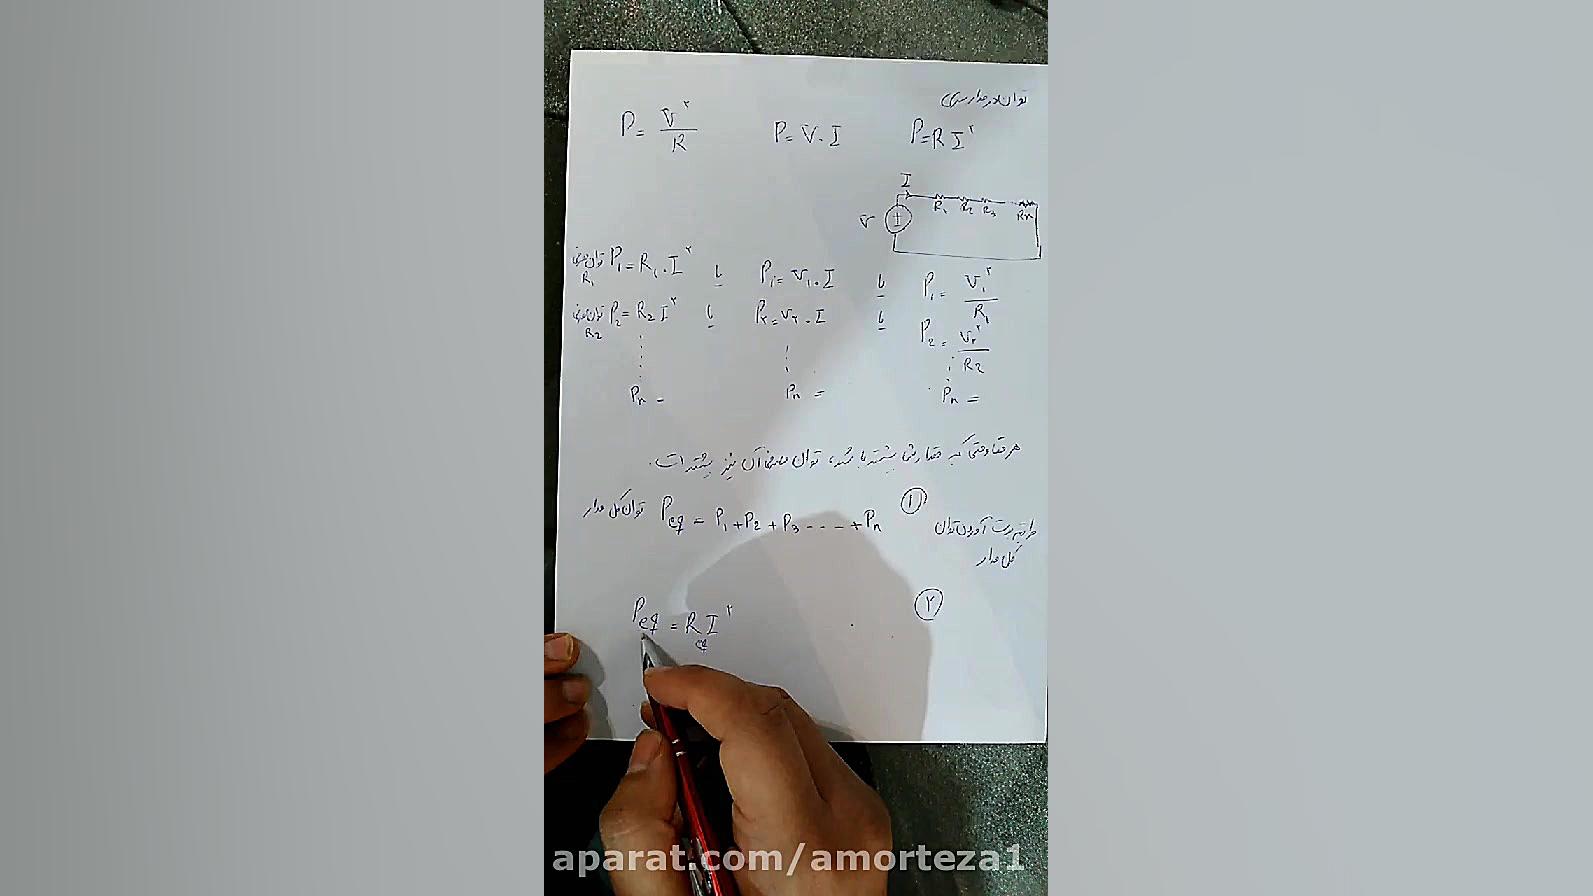 توان در مدار سری
P = V²/R    P = V . I    P = R I²
I
V R₁ R₂ R₃ Rn
توان مصرفی R₁ P₁ = R₁ . I² یا P₁ = V₁ . I یا P₁ = V₁²/R₁
توان مصرفی R₂ P₂ = R₂ I² یا P۲ = V۲ . I یا P₂ = V۲²/R₂
Pn = Pn = Pn =
هر مقاومتی که مقدارش بیشتر باشد، توان مصرفی آن نیز بیشتر است.
توان کل مدار Peq = P₁ + P₂ + P₃ - - - - + Pn ①
طریقه بدست آوردن توان
کل مدار
Peq = Req I² ۲
aparat.com/amorteza1